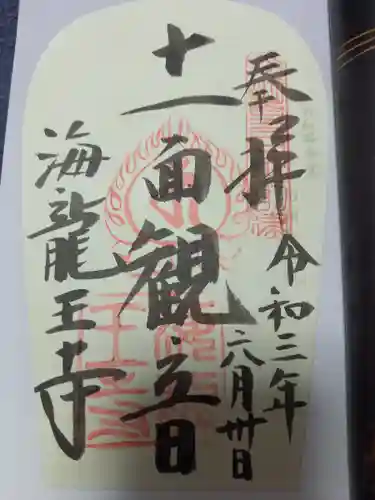 奉拝
令和三年
六月卅日
十一面観音
海龍王寺